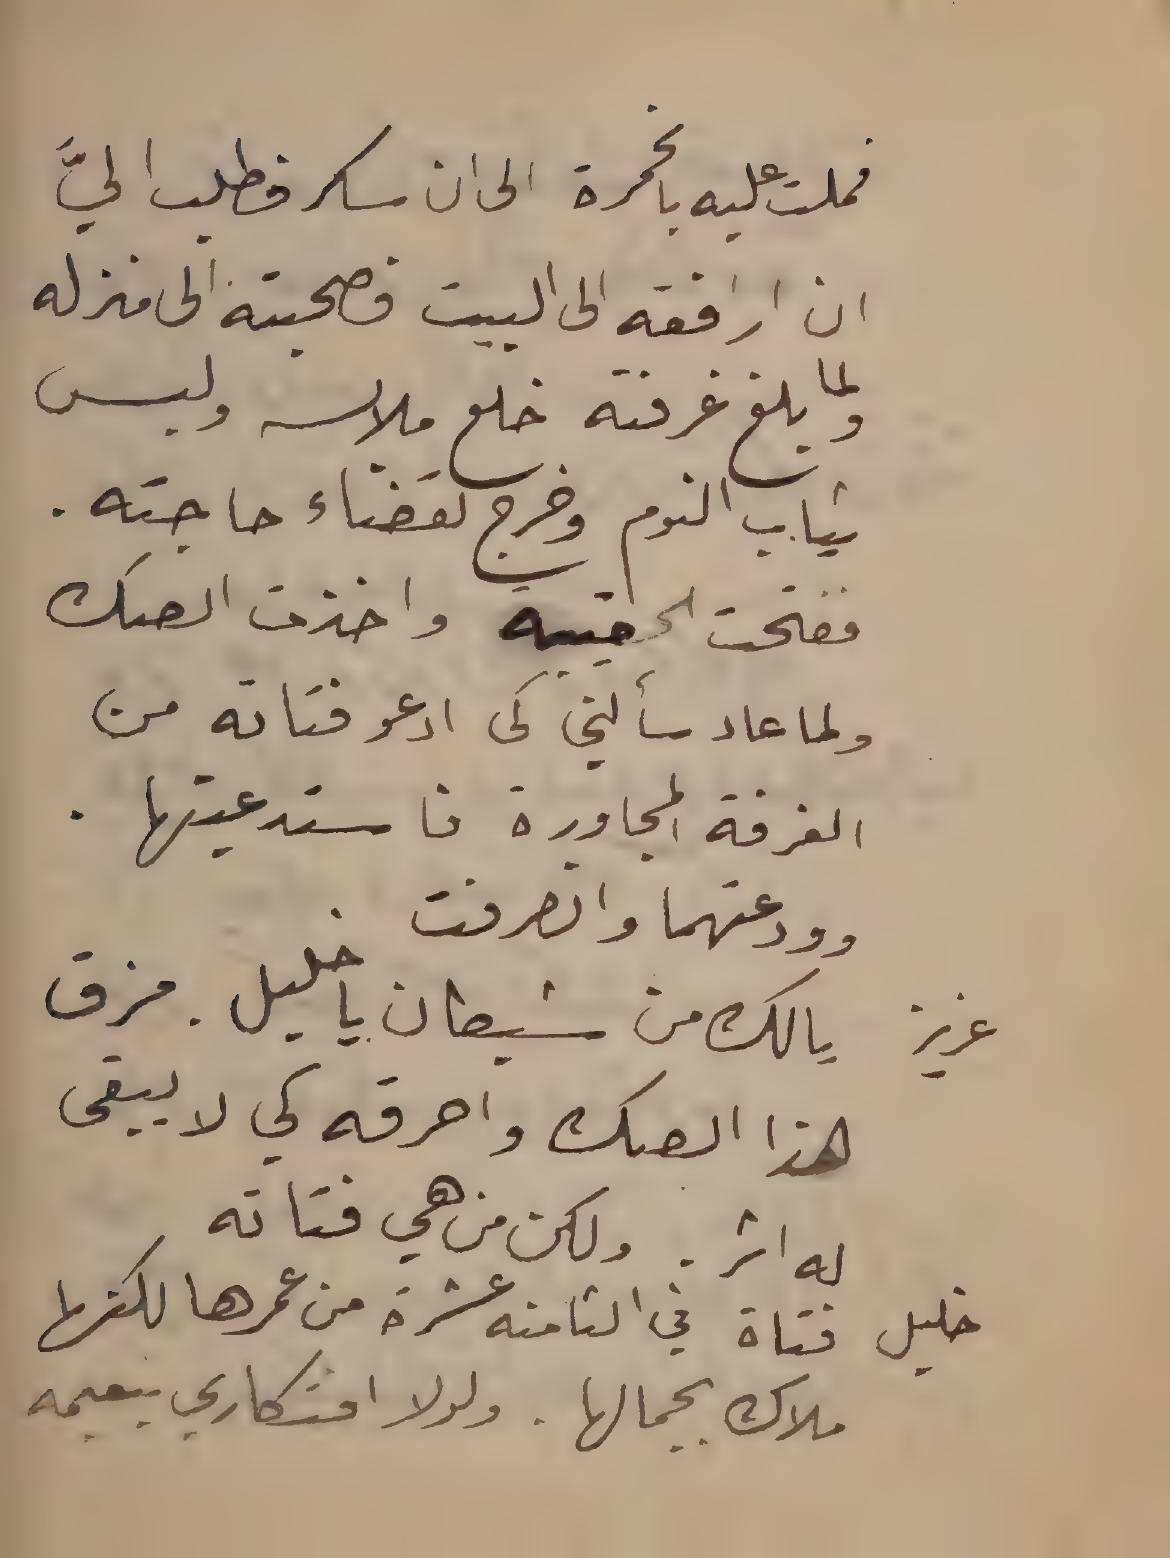 فملت عليه بالخمرة الى ان سكر فطلب اليَّ
ان ارافقه الى البيت فصحبته الى منزله
ولما بلغ غرفته خلع ملابسه ولبس
ثياب النوم وخرج لقضاء حاجته .
ففتحت الحقيبة واخذت الصك
ولما عاد سألني كي ادعو فتاته من
الغرفة المجاورة فاستدعيتها .
وودعتهما وانصرفت
عزيز يالك من شيطان يا خليل . مزق
هذا الصك واحرقه كي لا يبقى
له اثر . ولكن من هي فتاته
خليل فتاة في الثامنه عشرة من عمرها لكنها
ملاك بجمالها . ولولا افتكاري بنعيمه